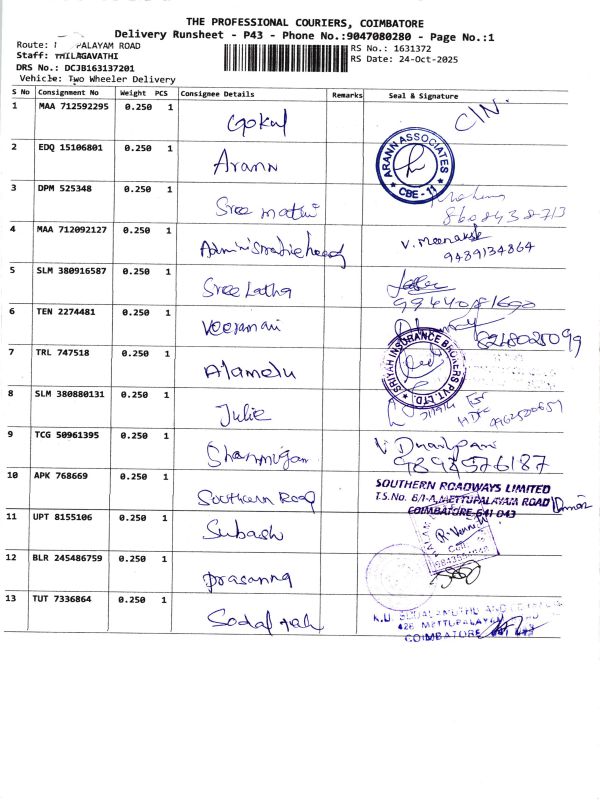 THE PROFESSIONAL COURIERS, COIMBATORE
Delivery Runsheet - P43 - Phone No.:9047080280 - Page No.:1
Route: PALAYAM ROAD
Staff: THILAGAVATHI
DRS No.: DCJB163137201
Vehicle: Two Wheeler Delivery
RS No.: 1631372
RS Date: 24-Oct-2025
S No Consignment No Weight PCS Consignee Details Remarks Seal & Signature
1 MAA 712592295 0.250 1 Gokul C/N.
2 EDQ 15106801 0.250 1 Arann ARANN ASSOCIATES CBE - 11
3 DPM 525348 0.250 1 Sree mathi 8608438713
4 MAA 712092127 0.250 1 V. Meenakshi
9489134864
5 SLM 380916587 0.250 1 Sree Latha
6 TEN 2274481 0.250 1 Veeramani
7 TRL 747518 0.250 1 Alamelu SRIYAH INSURANCE BROKERS PVT. LTD.
8 SLM 380880131 0.250 1 Julie
9 TCG 50961395 0.250 1 Shanmugam
10 APK 768669 0.250 1 Southern Road SOUTHERN ROADWAYS LIMITED
T.S.No. 8/1-A, METTUPALAYAM ROAD
COIMBATORE 641 043
11 UPT 8155106 0.250 1 Subash
12 BLR 245486759 0.250 1 Prasanna
13 TUT 7336864 0.250 1
COIMBATORE